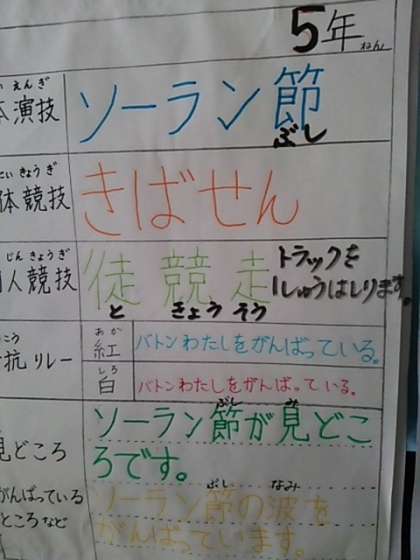 5年
ねん
えんぎ
演技
ソーラン節
ぶし
きょうぎ
体競技
きばせん
じんきょうぎ
人競技
徒競走
ときょうそう
トラックを
1しゅうはしります。
こう
抗リレー
あか
紅
バトンわたしをがんばっている。
しろ
白
バトンわたしをがんばっている。
見どころ
ぶし み
ソーラン節が見どこ
ろです。
がんばっている
ところなど
ぶし なみ
ソーラン節の波を
がんばっています。